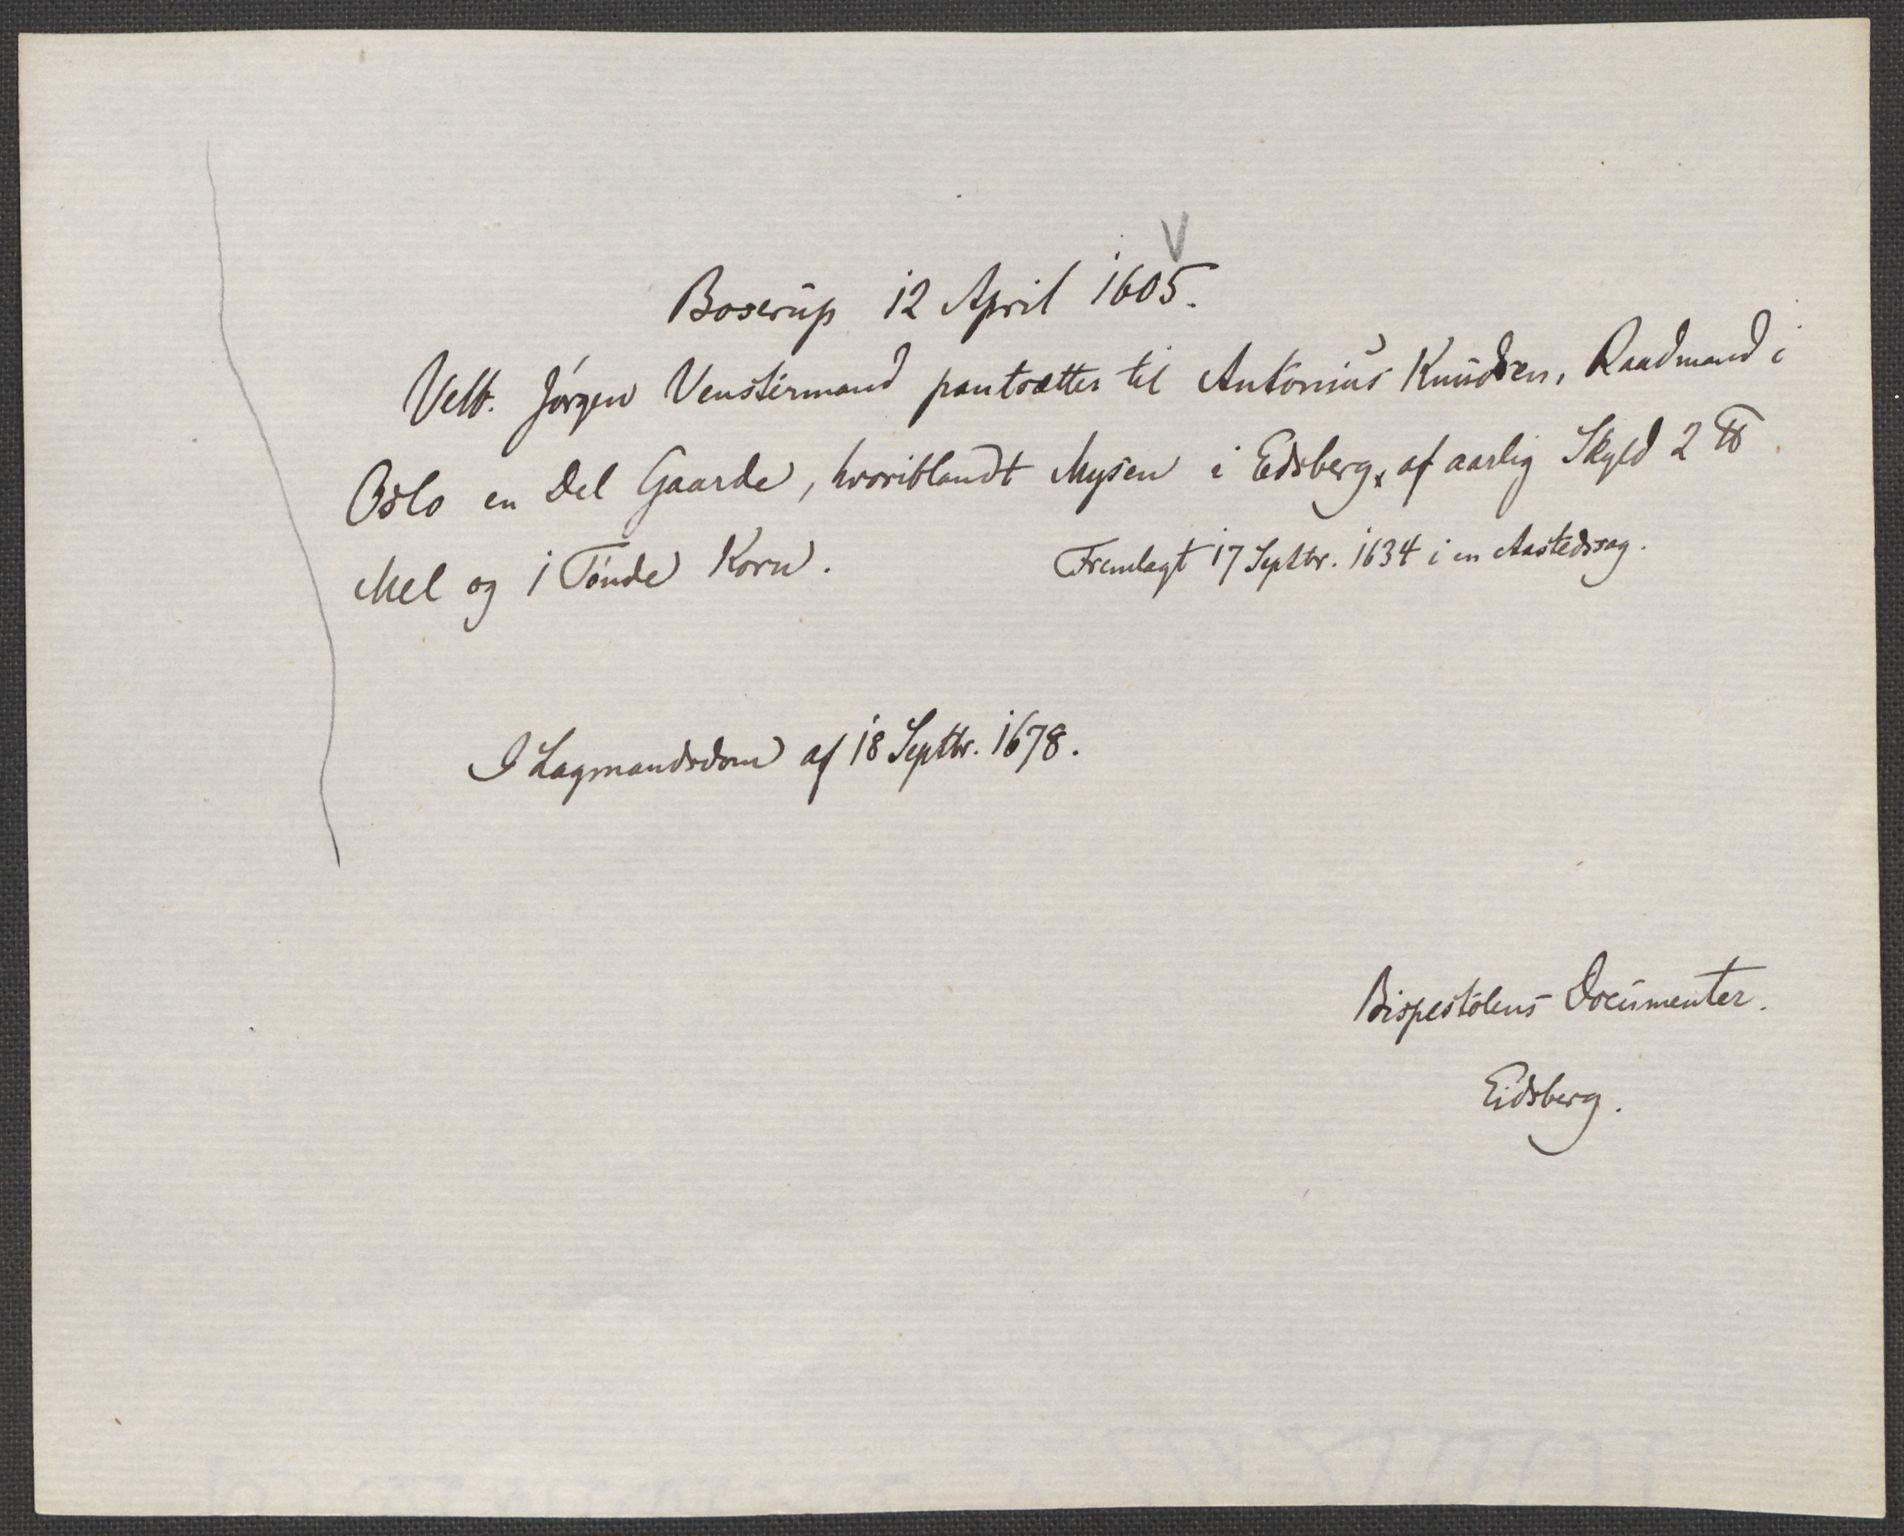 Boserup 12 April 1605.
Velb. Jørgen Venstermand pantsætter til Antonius Knudsen, Raadmand i
Oslo en Del Gaarde, hvoriblandt Mysen i Edsberg, af aarlig Skyld 2 ℔
Mel og 1 Tønde Korn. Fremlagt 17 Septbr. 1634 i en Aastedssag.
I Lagmandsdom af 18 Septbr. 1678.
Bispestolens Documenter.
Eidsberg.